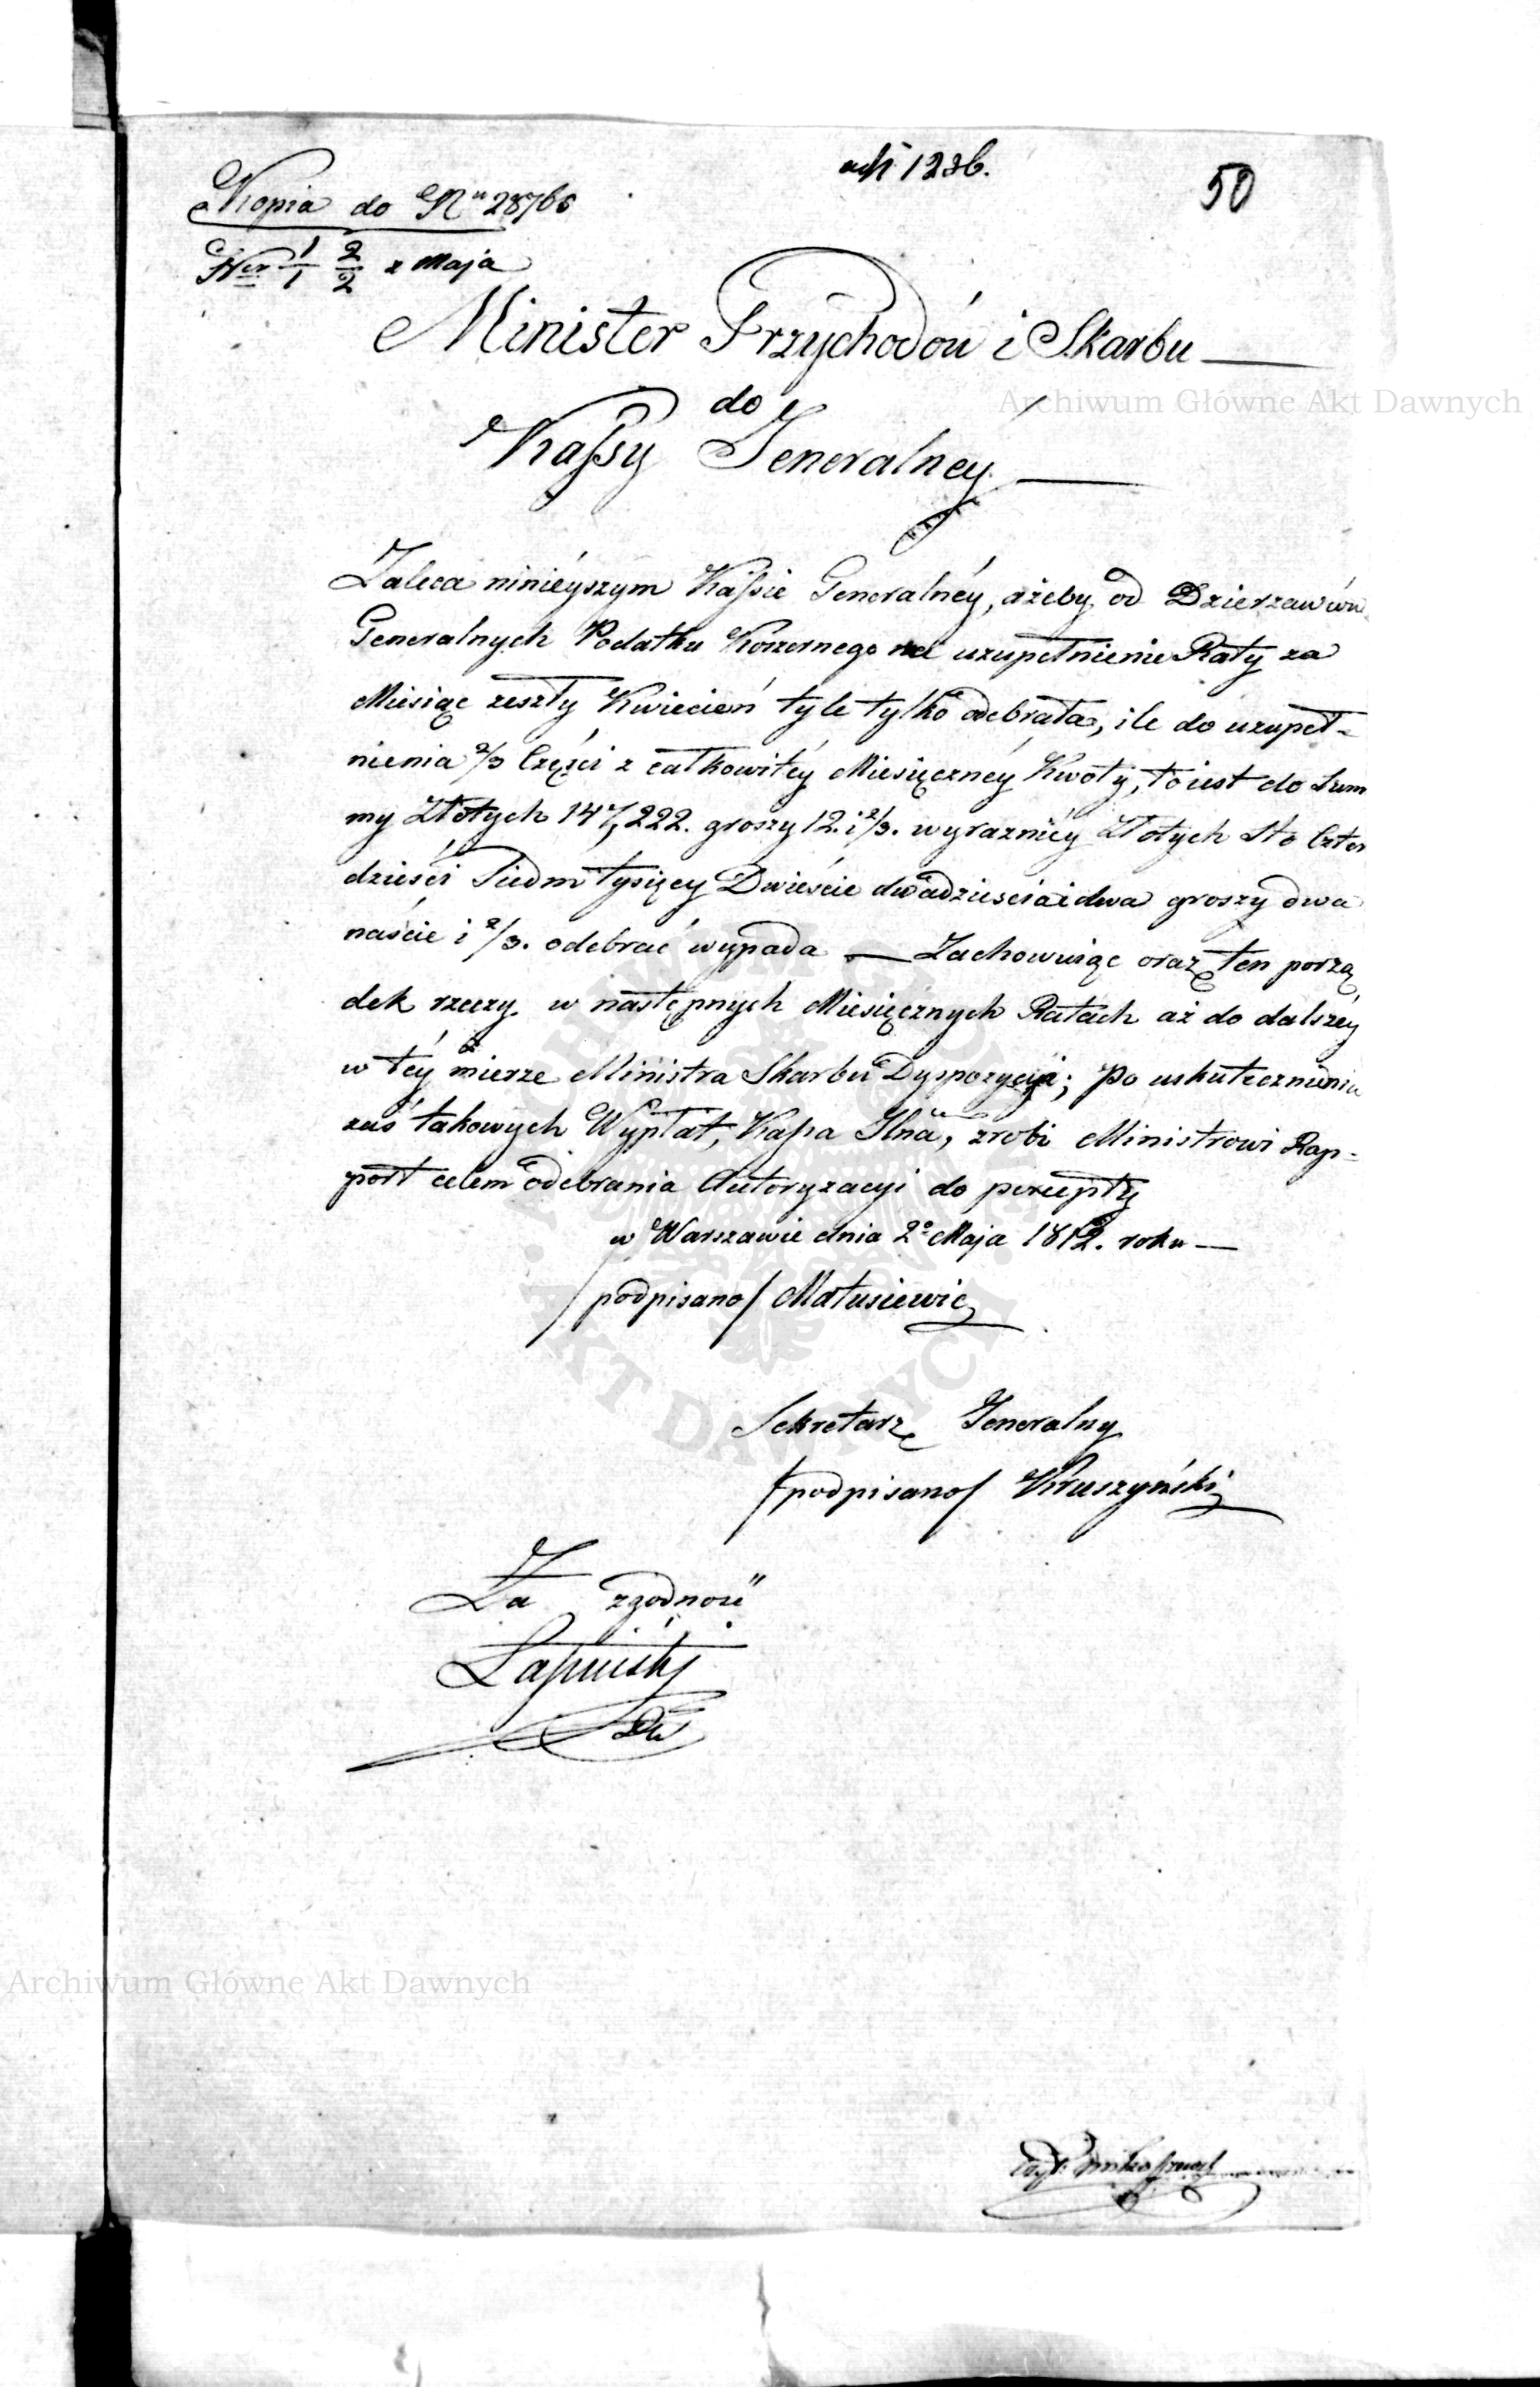 ad N 1236.
50
Kopia do Nru 28766
Ner 1/1 2/2 z Maja
Minister Przychodów i Skarbu
do
Kassy Jeneralney
Archiwum Główne Akt Dawnych
Zaleca ninieyszym Kassie Generalnéy, ażeby od Dzierżawców
Generalnych Podatku Koszernego na uzupełnienie Raty za
Miesiąc zeszły Kwiecień tyle tylko odebrała, ile do uzupeł-
nienia 2/3 Części z całkowitéy Miesięcznéy Kwoty, to iest do Sum
my Złotych 147,222. groszy 12. i 2/3. wyraznićy Złotych Sto Czter
dzieści Siedm tysięcy Dwieście dwadzieścia i dwa groszy dwa
naście i 2/3. odebrać wypada — Zachowuiąc oraz ten porzą
dek rzeczy w następnych Miesięcznych Ratach aż do dalszéy
w téy mierze Ministra Skarbu Dyspozycyi; Po uskutecznieniu
zaś takowych Wypłat, Kassa Glna, zrobi Ministrowi Rap-
port celem odebrania Autoryzacyi do percepty
w Warszawie dnia 2o Maja 1812. roku —
/podpisano/ Matusiewic
Sekretarz Jeneralny
/podpisano/ Kruszyński
Za zgodność
Łapiński
Archiwum Główne Akt Dawnych
ARCHIWUM GŁÓWNE · AKT DAWNYCH ·